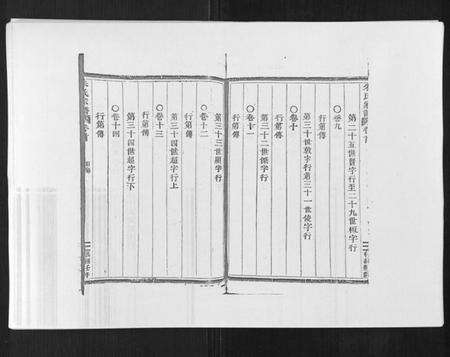 第二十五世晉字行至二十九世極字行
○卷九
行第傳
第三十世敦字行第三十一世倫字行
○卷十
行第傳
第三十二世傑字行
○卷十一
行第傳
第三十三世顯字行
○卷十二
行第傳
第三十四世庭字行上
○卷十三
行第傳
第三十四世庭字行下
○卷十四
行第傳